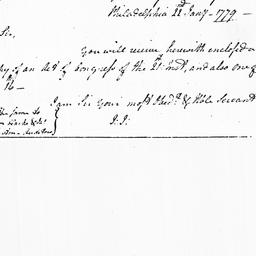 Philadelphia 22d Jany. 1779 —
Sir,
You will receive herewith enclosed a
py of an Act of Congress of the 21st inst, and also one of
16 —
I am Sir your most Obedt. & Hble Servant
J. J.
The same to